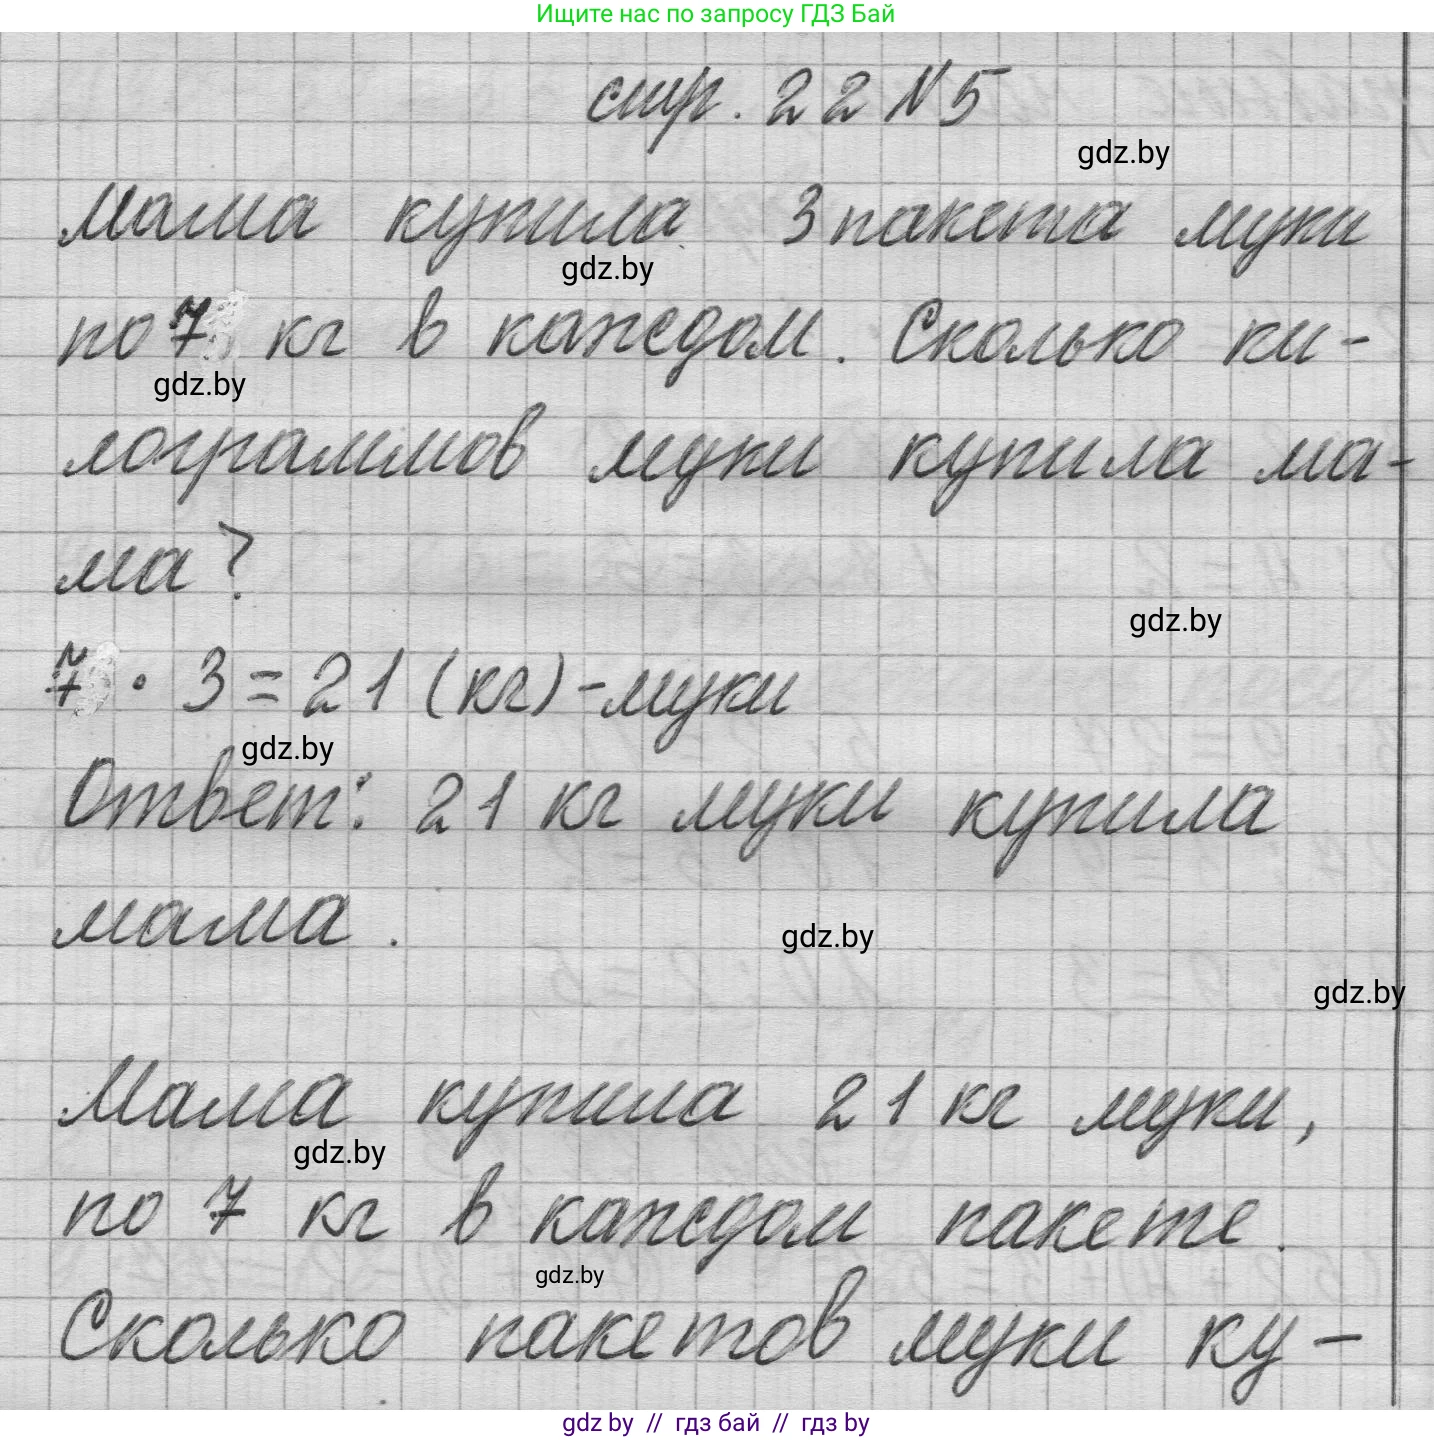 Ищите нас по запросу ГДЗ Бай
стр. 22 №5
gdz.by
Мама купила 3 пакета муки
gdz.by
по 7 кг в каждом. Сколько ки-
gdz.by
лограммов муки купила ма-
ма?
gdz.by
7 · 3 = 21 (кг) - муки
gdz.by
Ответ: 21 кг муки купила
мама.
gdz.by
gdz.by
Мама купила 21 кг муки,
gdz.by
по 7 кг в каждом пакете.
gdz.by
Сколько пакетов муки ку-
gdz by // гдз бай // гдз by